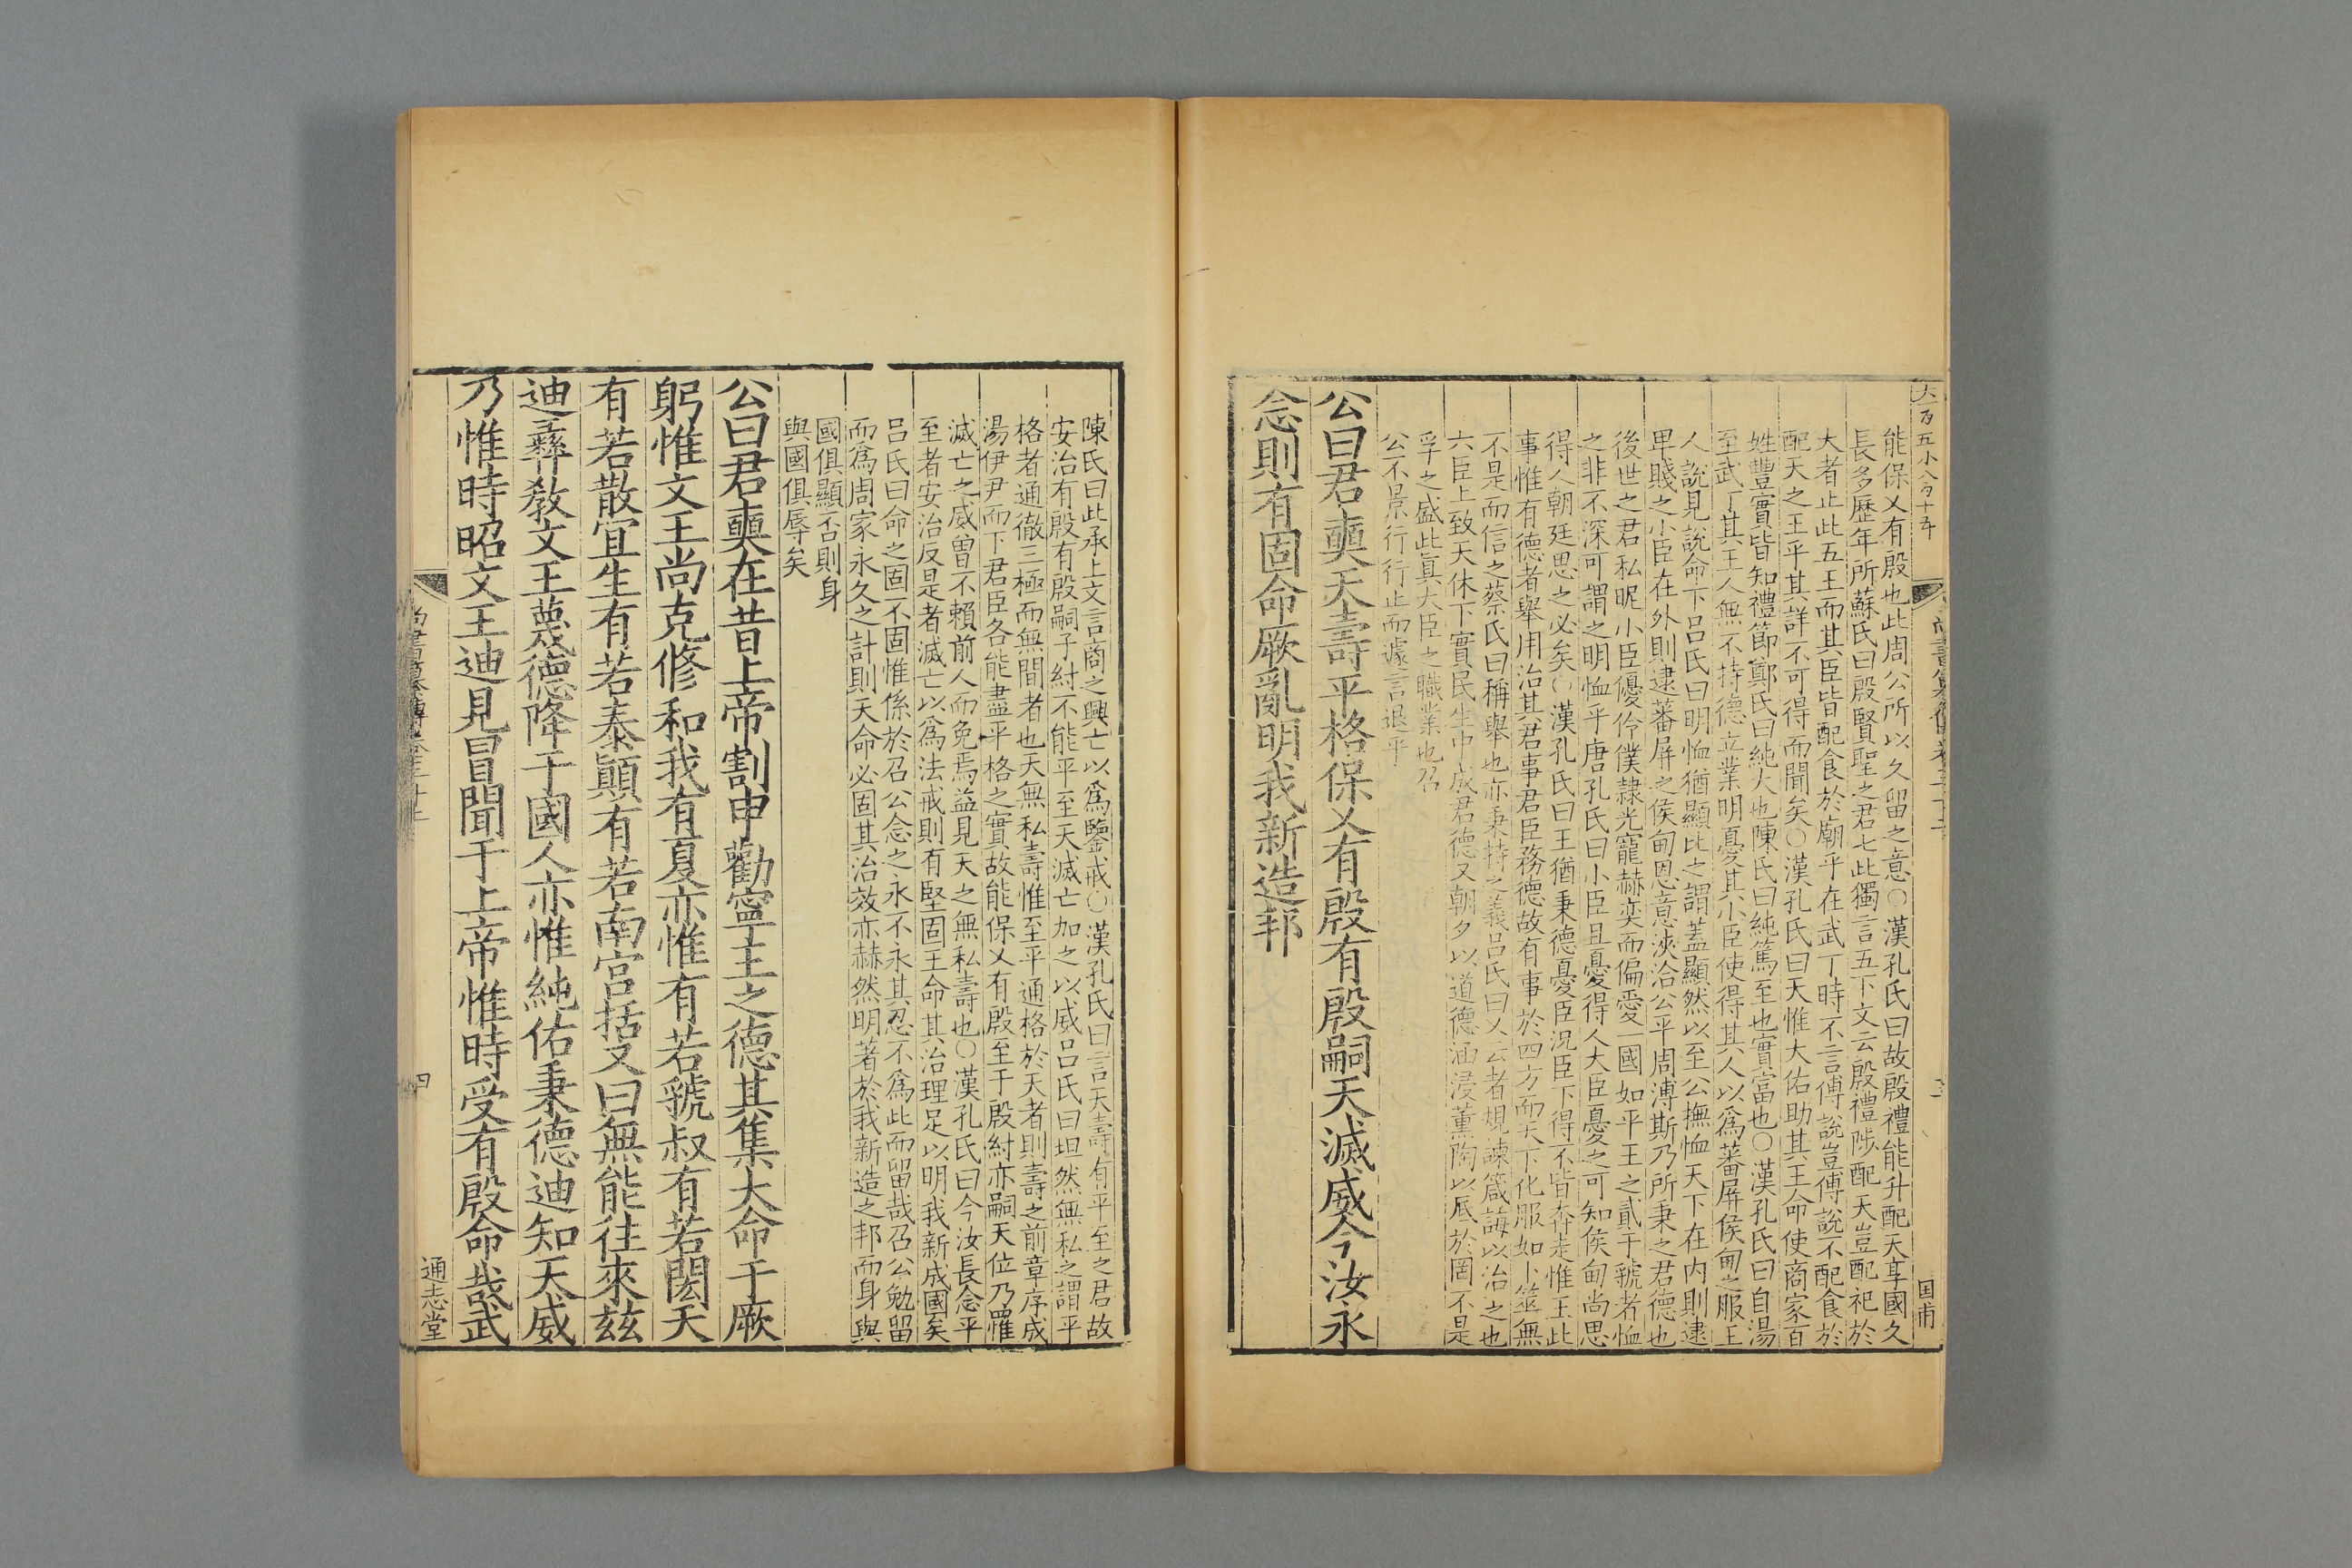 能保乂有殷也此周公所以久留之意○漢孔氏曰故殷禮能升配天享國久
長多歷年所蘇氏曰殷賢聖之君七此獨言五下文云殷禮陟配天豈配祀於
天者止此五王而其臣皆配食於廟乎在武丁時不言傅說豈傅說不配食於
配天之王乎其詳不可得而聞矣○漢孔氏曰天惟大佑助其王命使商家百
姓豐實皆知禮節鄭氏曰純大也陳氏曰純篤至也實富也○漢孔氏曰自湯
至武丁其王人無不持德立業明憂其小臣使得其人以為蕃屏侯甸之服王
人說見說命下呂氏曰明恤猶顯比之謂蓋顯然以至公撫恤天下在內則逮
卑賤之小臣在外則逮蕃屏之侯甸恩意浹洽公平周溥斯乃所秉之君德也
後世之君私昵小臣優伶僕隸光寵赫奕而偏愛一國如平王之貳于虢者恤
之非不深可謂之明恤乎唐孔氏曰小臣且憂得人大臣憂之可知侯甸尚思
得人朝廷思之必矣○漢孔氏曰王猶秉德憂臣況臣下得不皆奔走惟王此
事惟有德者舉用治其君事君臣務德故有事於四方而天下化服如卜筮無
不是而信之蔡氏曰稱舉也亦秉持之義呂氏曰乂云者規諫箴誨以治之也
六臣上致天休下實民生中成君德又朝夕以道德涵浸薰陶以厎於罔不是
孚之盛此真大臣之職業也召
公不景行行止而遽言退乎
公曰君奭天壽平格保乂有殷有殷嗣天滅威今汝永
念則有固命厥亂明我新造邦
大一百五小八百十五
国甫
陳氏曰此承上文言商之興亡以為鑒戒○漢孔氏曰言天壽有平至之君故
安治有殷有殷嗣子紂不能平至天滅亡加之以威呂氏曰坦然無私之謂平
格者通徹三極而無間者也天無私壽惟至平通格於天者則壽之前章序成
湯伊尹而下君臣各能盡平格之實故能保乂有殷至于殷紂亦嗣天位乃罹
滅亡之威曾不賴前人而免焉益見天之無私壽也○漢孔氏曰今汝長念平
至者安治反是者滅亡以為法戒則有堅固王命其治理足以明我新成國矣
呂氏曰命之固不固惟係於召公念之永不永其忍不為此而留哉召公勉留
而為周家永久之計則天命必固其治效亦赫然明著於我新造之邦而身與
國俱顯否則身
與國俱辱矣
公曰君奭在昔上帝割申勸寧王之德其集大命于厥
躬惟文王尚克修和我有夏亦惟有若虢叔有若閎夭
有若散宜生有若泰顛有若南宮括又曰無能往來茲
迪彝教文王蔑德降于國人亦惟純佑秉德迪知天威
乃惟時昭文王迪見冒聞于上帝惟時受有殷命哉武
四
通志堂